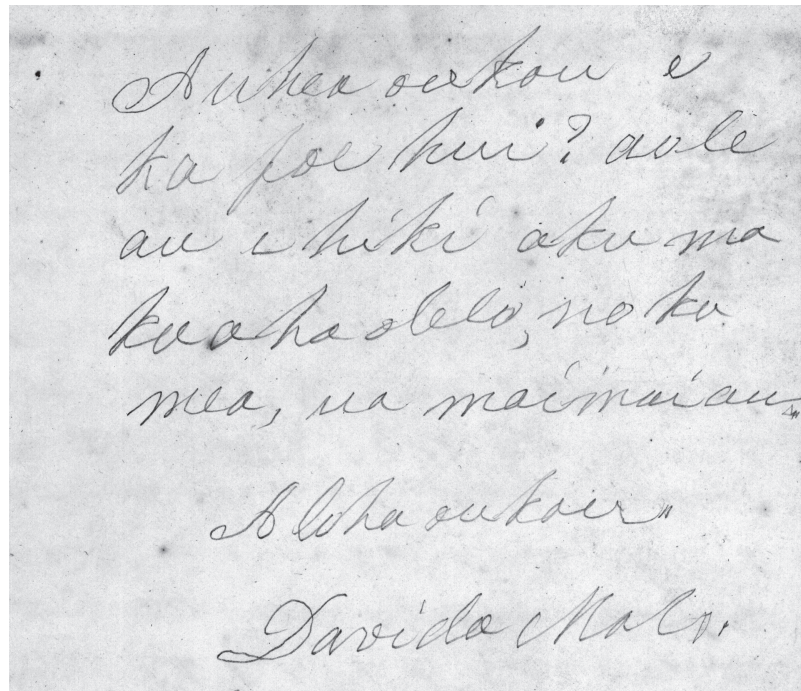 Auhea oukou e
ka poe hui? aole
au e hiki aku ma
ka aha olelo, no ka
mea, ua maimai au„
Aloha oukou„
Davida Malo.